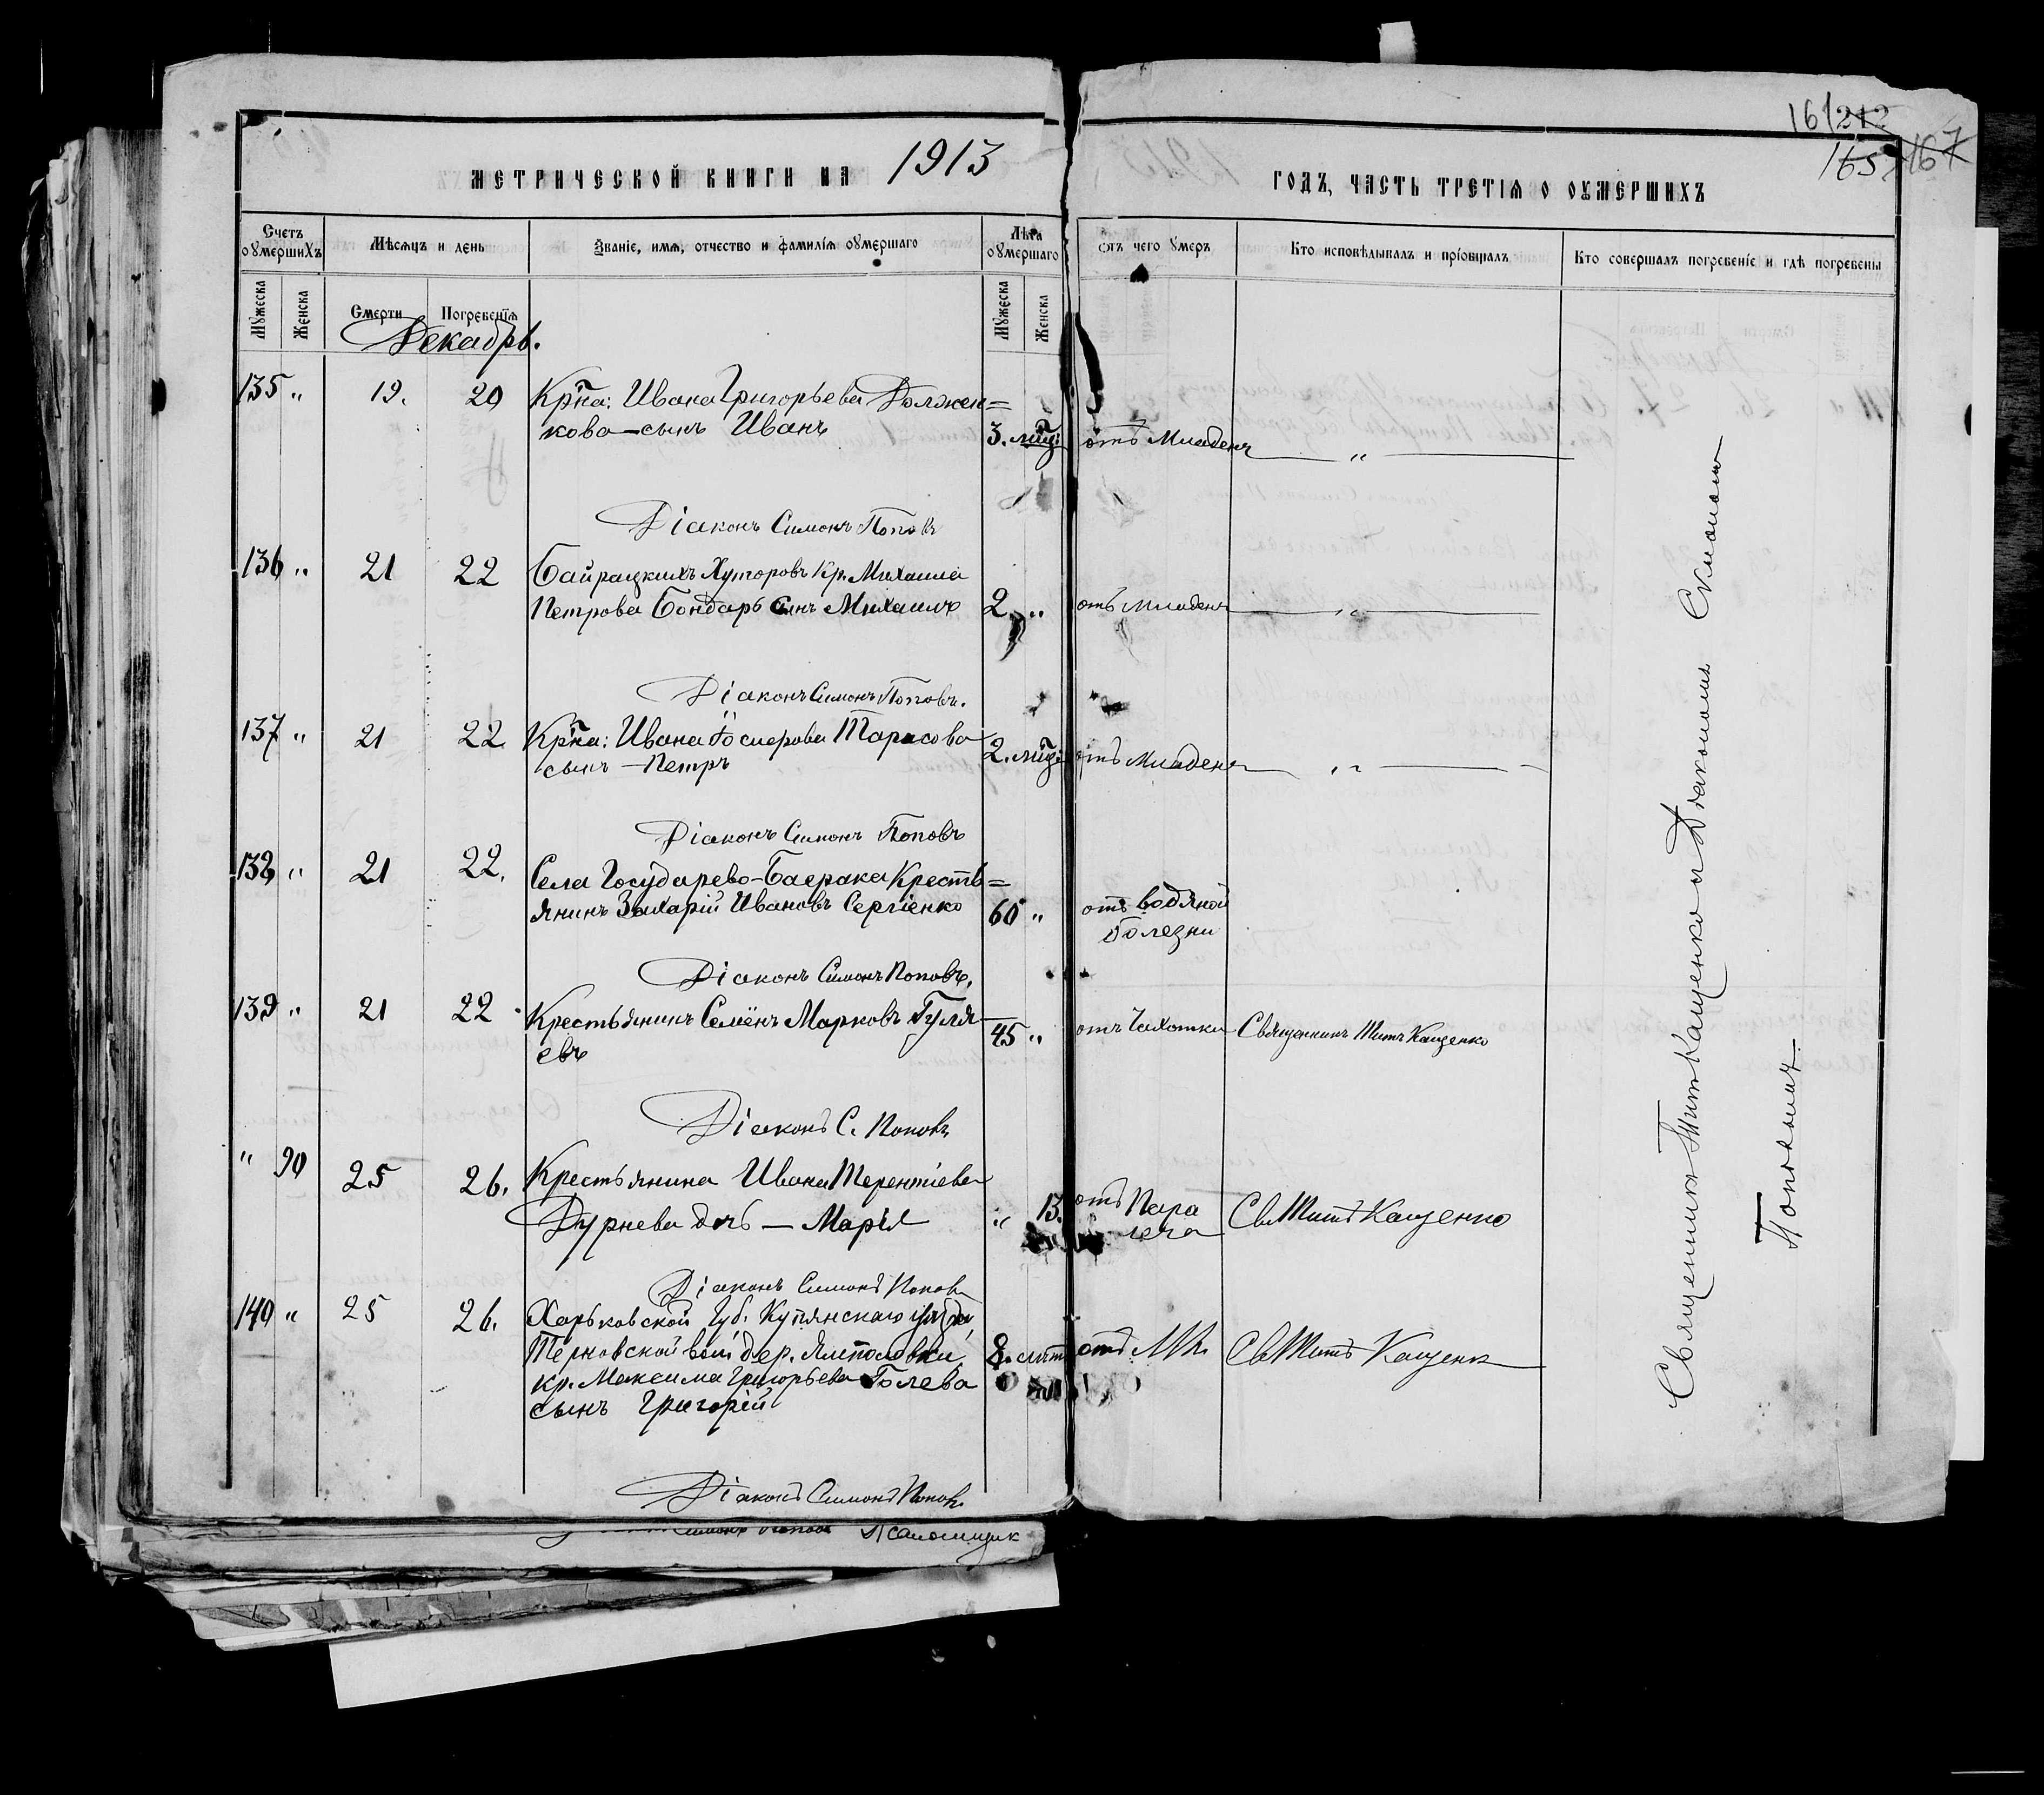 161 212
165 167
МЕТРИЧЕСКОЙ КНИГИ НА 1913
ГОДЪ, ЧАСТЬ ТРЕТІЯ О ОУМЕРШИХЪ
Счетъ оумершихъ
Мѣсяцъ и день
Званіе, имя, отчество и фамилія оумершаго
Лѣта оумершаго
Отъ чего умеръ
Кто исповѣдывалъ и пріобщалъ
Кто совершалъ погребеніе и гдѣ погребены
Мужеска Женска Смерти Погребенія Мужеска Женска
Декабрь.
135 „ 19. 20 Крⷭна: Ивана Григорьева Должен=
кова—сынъ Иванъ 3. мⷭц: отъ младенч „
Діаконъ Симонъ Поповъ
136 „ 21 22 Байрацкихъ Хуторовъ Кр. Михаила
Петрова Бондарь сынъ Михаилъ 2 „ отъ младенч „
Діаконъ Симонъ Поповъ.
137 „ 21 22 Крⷭна: Ивана Тарасова
сынъ—Петръ 2. мⷭц: отъ младенч „
Діаконъ Симонъ Поповъ
138 „ 21 22. Села Государево-Баерака Кресть=
янинъ Захарій Ивановъ Сергіенко 60 „ отъ водяной
болезни
Діаконъ Симонъ Поповъ.
139 „ 21 22 Крестьянинъ Семёнъ Марковъ Гуля-
евъ 45 „ отъ чахотки Священникъ Титъ Кащенко
Діаконъ С. Поповъ
„ 90 25 26. Крестьянина Ивана Терентіева
Дурнева дочь — Марія „ 13. отъ Пара
лича Св Титъ Кащенко
Діаконъ Симонъ Поповъ
140 „ 25 26. Харьковской Губ. Купянскаго уѣзда,
Терновской вол. дер.
кр. Максима Григорьева Голева
сынъ Григорій 8. отъ Св Титъ Кащенк
Діаконъ Симонъ Поповъ.
Священникъ Титъ Кащенко и Діакономъ Симономъ
Поповымъ.
Симонъ Поповъ Псаломщик